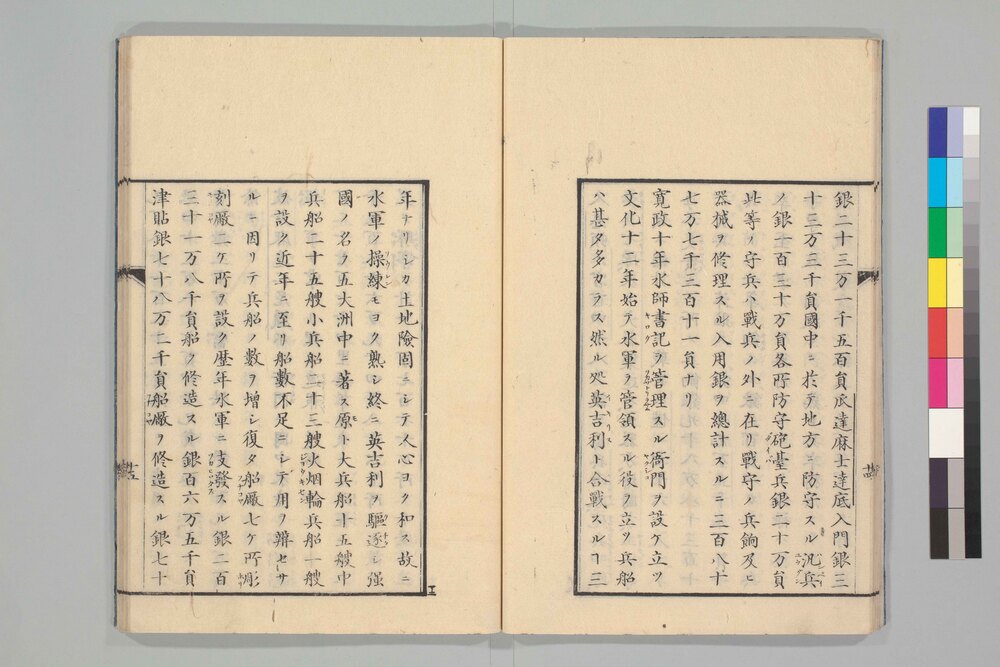 銀二十三万一千五百員底達麻士達底入門銀三
十三万三千員國中ニ於テ地方ニ防守スル汛兵
ノ銀一百三十万員各所防守砲臺兵銀二十万員
此等ノ守兵ハ戰兵ノ外ニ在リ戰守ノ兵餉及ヒ
器械ヲ修理スル入用銀ヲ總計スルニ三百八十
七万七千三百十一員ナリ
寛政十年水師書記ヲ管理スル衙門ヲ設ケ立ツ
文化十二年始テ水軍ヲ管領スル役ヲ立ツ兵船
ハ甚タ多カラス然ル処英吉利ト合戰スルヿ三
年ナリシカ土地險固ニシテ人心ヨク和ス故ニ
水軍ノ操練モヨク熟シ終ニ英吉利ヲ驅逐シ强
國ノ名ヲ五大洲中ニ著ス原ト大兵船十五艘中
兵船二十五艘小兵船二十三艘火烟輪兵船一艘
ヲ設ク近年ニ至リ船數不足ニシテ用ヲ辨セサ
ルニ因リテ兵船ノ數ヲ増シ復タ船厰七ケ所彫
刻厰二ケ所ヲ設ク歴年水軍ニ支發スル銀二百
三十一万八千員船ノ修造スル銀百六万五千員
津貼銀七十八万二千員船厰ヲ修造スル銀七十